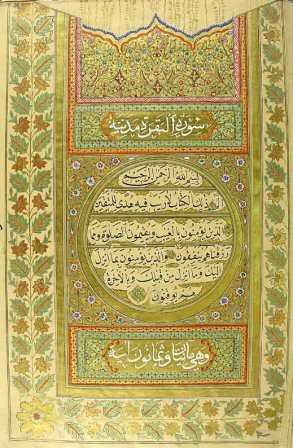 سورة البقرة مدنية
بسم الله الرحمن الرحيم
الم ذلك الكتاب لا ريب فيه هدى للمتقين
الذين يؤمنون بالغيب ويقيمون الصلوة ومما
رزقناهم ينفقون والذين يؤمنون بما انزل
اليك وما انزل من قبلك وبالاخرة
هم يوقنون
وهي مائتان وثمانون آية